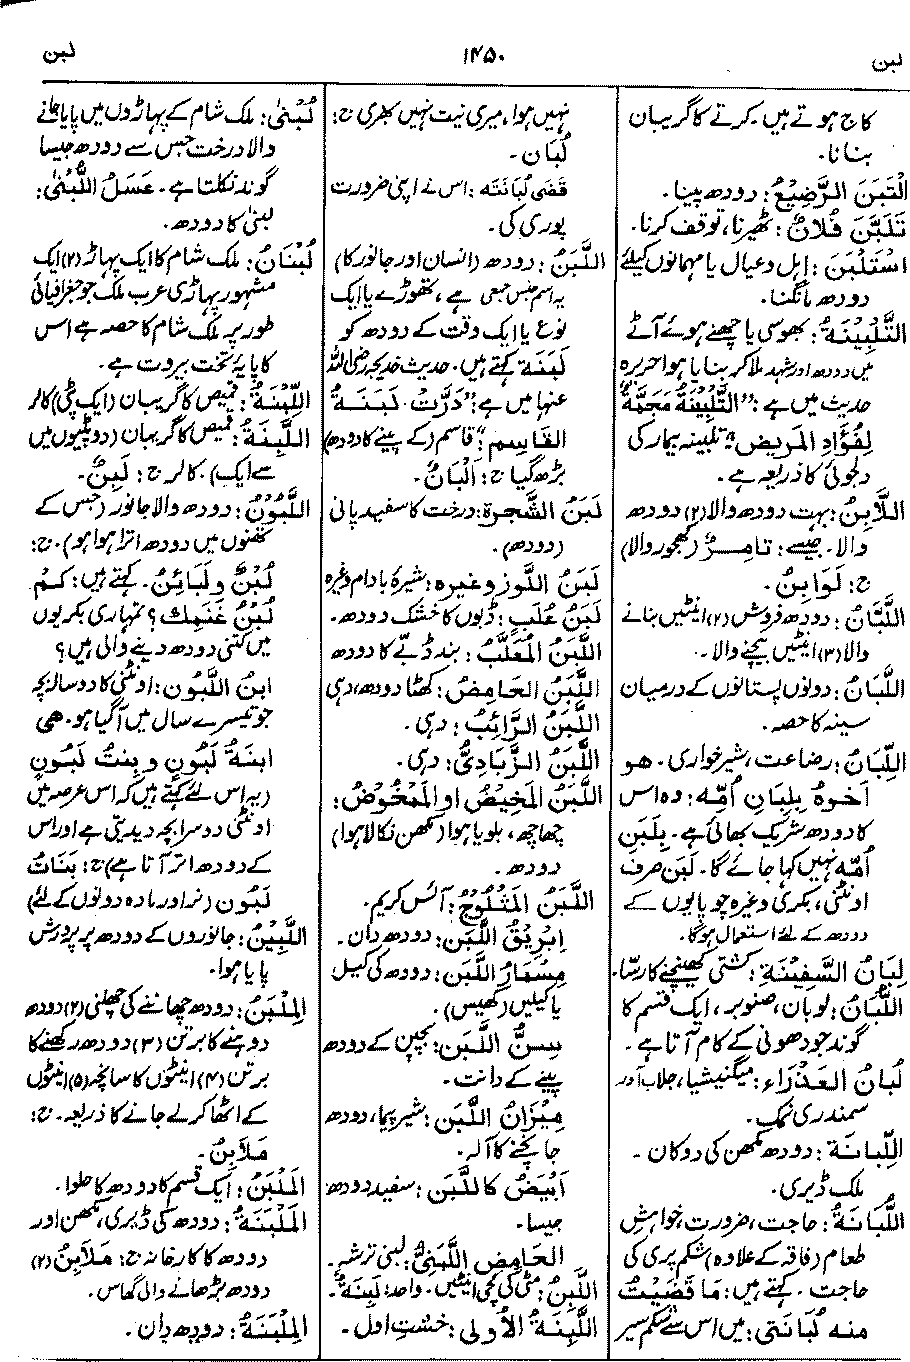 لبن
۱۴۵۰
لبن
کاج ہوتے ہیں۔ کرتے کا گریبان
بنانا۔
الْتَبَنَ الرَّضِيْعُ: دودھ پینا۔
تَلَبَّنَ فُلَانٌ: ٹھیرنا، توقف کرنا۔
اسْتَلْبَنَ: اہل و عیال یا مہمانوں کیلئے
دودھ مانگنا۔
التَّلْبِيْنَةُ: بھوسی یا چھنے ہوئے آٹے
میں دودھ اور شہد ملا کر بنایا ہوا حریرہ
حدیث میں ہے: "التَّلْبِيْنَةُ مَجَمَّةٌ
لِفُؤَادِ المَرِيضِ" تلبینہ بیمار کی
دلجوئی کا ذریعہ ہے۔
اللَّابِنُ: بہت دودھ والا (۲) دودھ
والا۔ جیسے: تامِرٌ (کھجور والا)
ج: لَوَابِنُ۔
اللَّبَّانُ: دودھ فروش (۲) اینٹیں بنانے
والا (۳) اینٹیں بیچنے والا۔
اللَّبَانُ: دونوں پستانوں کے درمیان
سینہ کا حصہ۔
اللِّبَانُ: رضاعت، شیر خواری۔ هو
أخوهُ بِلِبَانِ أُمِّه: وہ اس
کا دودھ شریک بھائی ہے۔ بِلَبَنِ
أُمِّه نہیں کہا جائے گا۔ لَبَن صرف
اونٹنی، بکری وغیرہ چوپایوں کے
دودھ کے لئے استعمال ہوگا۔
لِبَانُ السَّفِيْنَةِ: کشتی کھینچنے کا رسّا۔
اللُّبَانُ: لوبان، صنوبر، ایک قسم کا
گوند جو دھونی کے کام آتا ہے۔
لُبانُ العَذْرَاءِ: میگنیشیا، جلاب آور
سمندری نمک۔
اللِّبانَة: دودھ مکھن کی دوکان۔
ملک ڈیری۔
اللُّبَانَةُ: حاجت، ضرورت، خواہشِ
طعام (فاقہ کے علاوہ) شکم پری کی
حاجت۔ کہتے ہیں: مَا قَضَيْتُ
منه لُبَانَتِي: میں اس سے شکم سیر
نہیں ہوا، میری نیت نہیں بھری ج:
لُبَان۔
قَضَى لُبَانَتَه: اس نے اپنی ضرورت
پوری کی۔
اللَّبَنُ: دودھ (انسان اور جانور کا)
یہ اسم جنس جمعی ہے، تھوڑے یا ایک
نوع یا ایک وقت کے دودھ کو
لَبَنَة کہتے ہیں۔ حدیث خدیجہ رضی اللہ
عنہا میں ہے: "دَرَّتْ لَبَنَةُ
القَاسِمِ" قاسم (کے پینے کا دودھ)
بڑھ گیا ج: أَلْبَانٌ۔
لَبَنُ الشَّجرةِ: درخت کا سفید پانی
(دودھ)۔
لَبَنُ اللَّوزِ وغيره: شیرۂ بادام وغیرہ
لَبَنُ عُلَبٍ: ڈبوں کا خشک دودھ۔
اللَّبَنُ المُعَلَّبُ: بند ڈبے کا دودھ
اللَّبَنُ الحَامِضُ: کھٹا دودھ، دہی
اللَّبَنُ الرَّائِبُ: دہی۔
اللَّبَنُ الزَّبادِيُّ: دہی۔
اللَّبَنُ المَخِيْضُ او المَمْخُوْضُ:
چھاچھ، بلویا ہوا (مکھن نکالا ہوا)
دودھ۔
اللَّبَنُ المَثْلُوْجُ: آئس کریم۔
اِبْرِيْقُ اللَّبَنِ: دودھ دان۔
مِسْمَارُ اللَّبَنِ: دودھ کی کیل
یا کیلیں (کھیس)۔
سِنُّ اللَّبَنِ: بچپن کے دودھ
پینے کے دانت۔
مِيْزَانُ اللَّبَنِ: شیر پیما، دودھ
جانچنے کا آلہ۔
أَبْيَضُ كاللَّبَنِ: سفید دودھ
جیسا۔
الحَامِضُ اللَّبَنِيُّ: لبنی ترشہ۔
اللَّبِنُ: مٹی کی کچی اینٹیں۔ واحد: لَبِنَةٌ۔
اللَّبِنَةُ الأُولى: خشتِ اول۔
لُبْنٰى: ملک شام کے پہاڑوں میں پایا جانے
والا درخت جس سے دودھ جیسا
گوند نکلتا ہے۔ عَسَلُ اللُّبْنٰى:
لبنیٰ کا دودھ۔
لُبْنَانُ: ملک شام کا ایک پہاڑ (۲) ایک
مشہور پہاڑی عرب ملک جو جغرافیائی
طور پر ملک شام کا حصہ ہے اس
کا پایۂ تخت بیروت ہے۔
اللِّبْنَةُ: قمیص کا گریبان (ایک پٹی) کالر
اللَّبِنَةُ: قمیص کا گریبان (دو پٹیوں میں
سے ایک)۔ کالر ج: لَبِنٌ۔
اللَّبُوْنُ: دودھ والا جانور (جس کے
تھنوں میں دودھ اترا ہوا ہو)۔ ج:
لُبْنٌ و لَبائِنُ۔ کہتے ہیں: كَمْ
لُبْنُ غَنَمِكَ؟ تمہاری بکریوں
میں کتنی دودھ دینے والی ہیں؟
ابنُ اللَّبُون: اونٹنی کا دو سالہ بچہ
جو تیسرے سال میں آگیا ہو۔ هى
ابنَةُ لَبُونٍ و بِنتُ لَبُونٍ
(یہ اس لئے کہتے ہیں کہ اس عرصہ میں
اونٹنی دوسرا بچہ دیدیتی ہے اور اس
کے دودھ اتر آتا ہے) ج: بَنَاتُ
لَبُون (نر اور مادہ دونوں کے لئے)
اللَّبِيْنُ: جانوروں کے دودھ پر پرورش
پایا ہوا۔
المِلْبَنُ: دودھ چھاننے کی چھلنی (۲) دودھ
دوہنے کا برتن (۳) دودھ رکھنے کا
برتن (۴) اینٹوں کا سانچہ (۵) اینٹوں
کے اٹھا کر لے جانے کا ذریعہ۔ ج:
مَلَابِنُ۔
المَلْبَنُ: ایک قسم کا دودھ کا حلوا۔
المَلْبَنَةُ: دودھ کی ڈیری، مکھن اور
دودھ کا کارخانہ ج: مَلَابِنُ (۲)
دودھ بڑھانے والی گھاس۔
المِلْبَنَةُ: دودھ دان۔